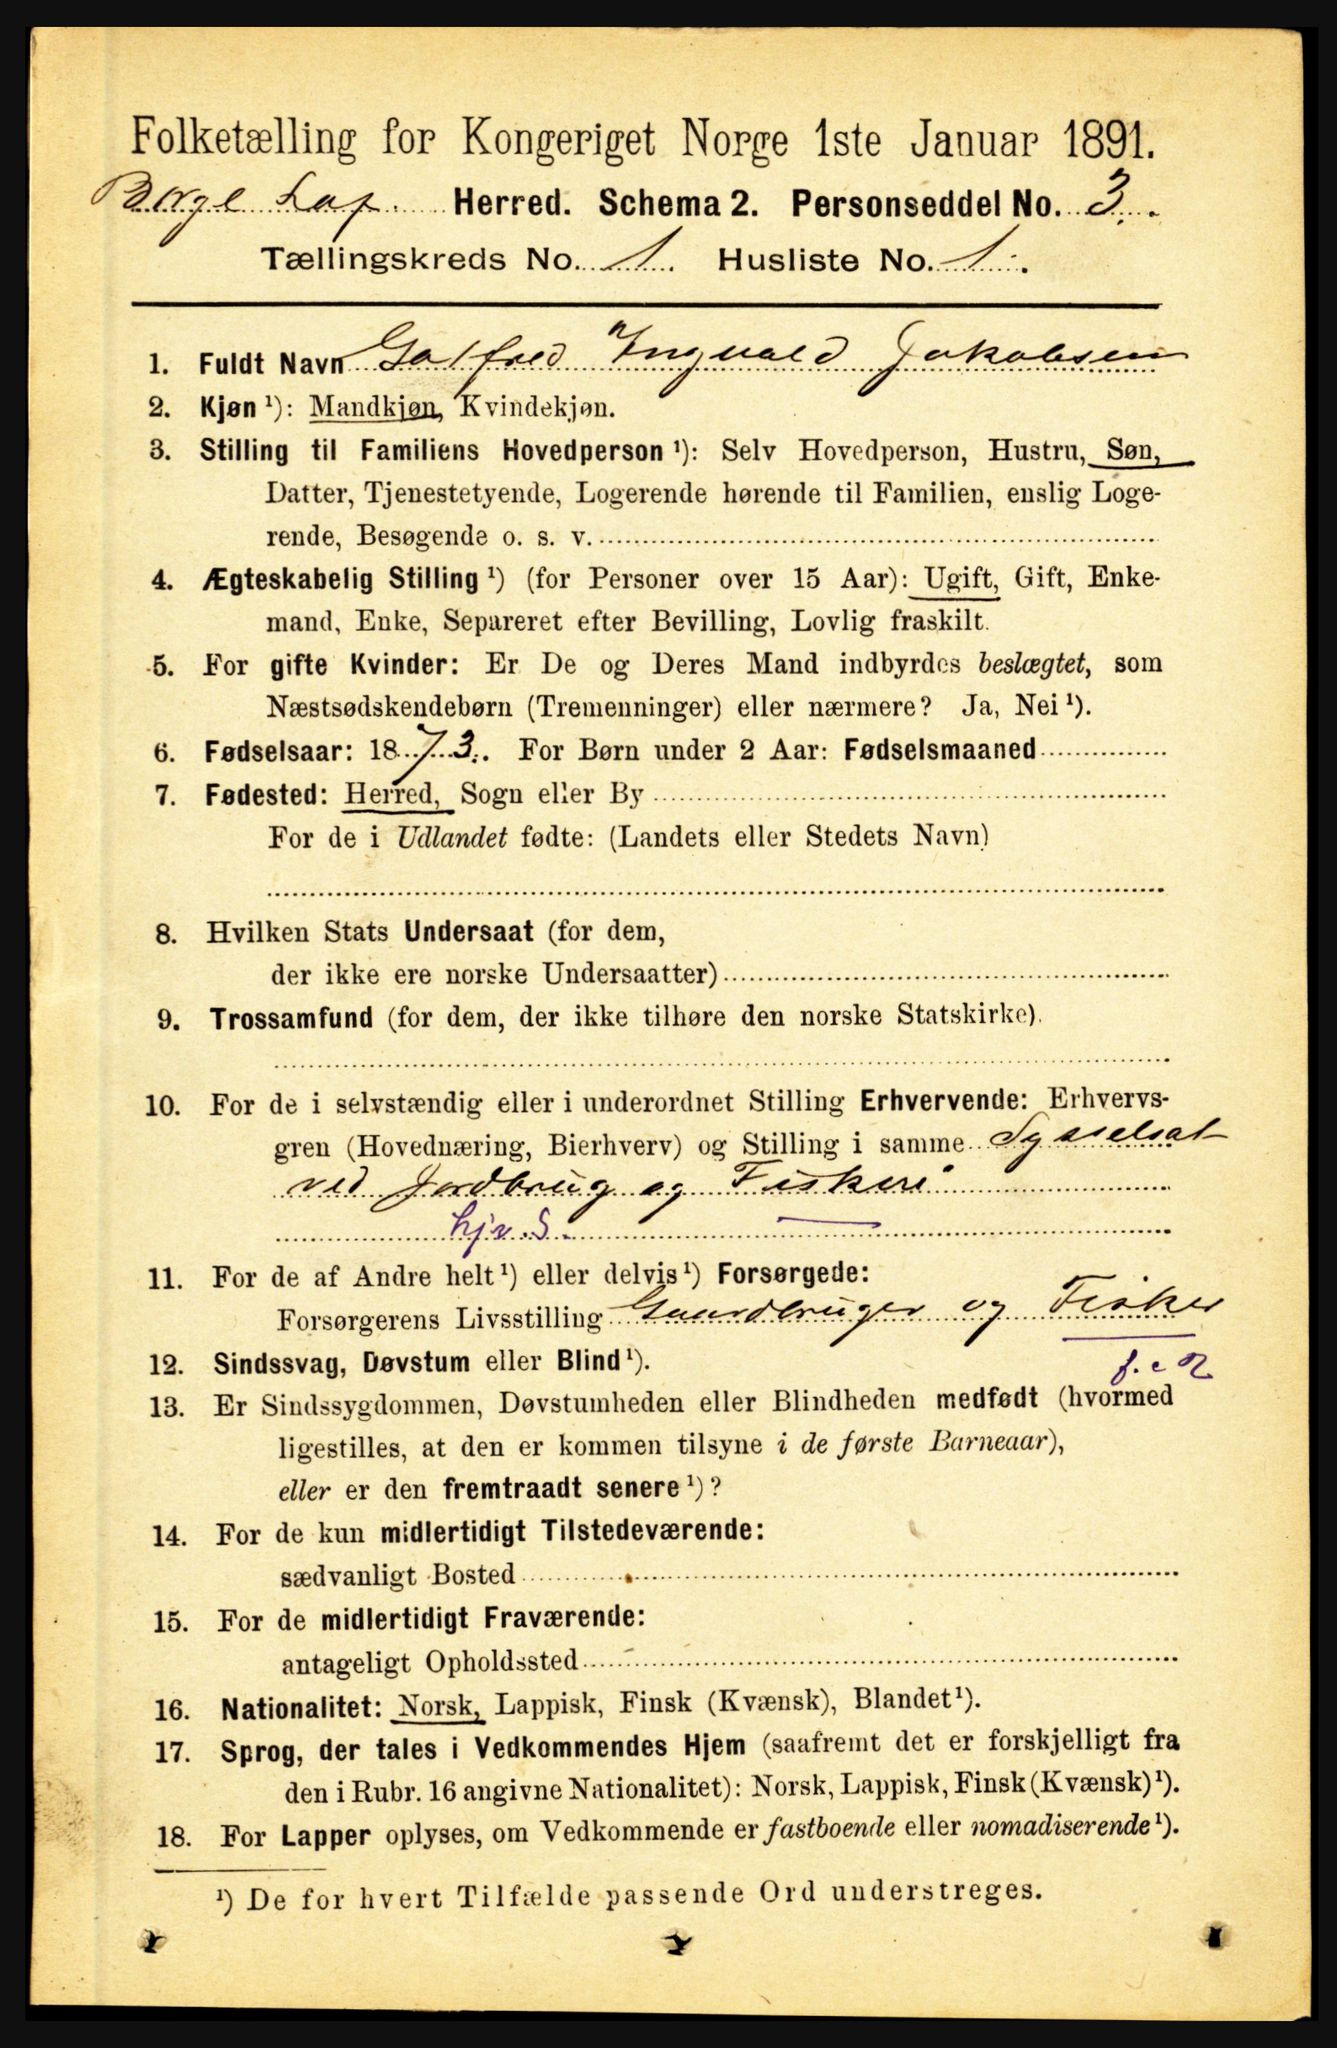 Folketælling for Kongeriget Norge 1ste Januar 1891.
Borge Lof. Herred. Schema 2. Personseddel No. 3.
Tællingskreds No. 1. Husliste No. 1.
1. Fuldt Navn Galfred Ingvald Jakobsen
2. Kjøn ¹): Mandkjøn, Kvindekjøn.
3. Stilling til Familiens Hovedperson ¹): Selv Hovedperson, Hustru, Søn,
Datter, Tjenestetyende, Logerende hørende til Familien, enslig Loge-
rende, Besøgende o. s. v.
4. Ægteskabelig Stilling ¹) (for Personer over 15 Aar): Ugift, Gift, Enke-
mand, Enke, Separeret efter Bevilling, Lovlig fraskilt.
5. For gifte Kvinder: Er De og Deres Mand indbyrdes beslægtet, som
Næstsødskendebørn (Tremenninger) eller nærmere? Ja, Nei ¹).
6. Fødselsaar: 1873. For Børn under 2 Aar: Fødselsmaaned
7. Fødested: Herred, Sogn eller By
For de i Udlandet fødte: (Landets eller Stedets Navn)
8. Hvilken Stats Undersaat (for dem,
der ikke ere norske Undersaatter)
9. Trossamfund (for dem, der ikke tilhøre den norske Statskirke).
10. For de i selvstændig eller i underordnet Stilling Erhvervende: Erhvervs-
gren (Hovednæring, Bierhverv) og Stilling i samme Sysselsat
ved Jordbrug og Fiskeri
hjv. S.
11. For de af Andre helt ¹) eller delvis ¹) Forsørgede:
Forsørgerens Livsstilling Gaardbruger og Fisker
12. Sindssvag, Døvstum eller Blind ¹).
13. Er Sindssygdommen, Døvstumheden eller Blindheden medfødt (hvormed
ligestilles, at den er kommen tilsyne i de første Barneaar),
eller er den fremtraadt senere ¹)?
14. For de kun midlertidigt Tilstedeværende:
sædvanligt Bosted
15. For de midlertidigt Fraværende:
antageligt Opholdssted
16. Nationalitet: Norsk, Lappisk, Finsk (Kvænsk), Blandet ¹).
17. Sprog, der tales i Vedkommendes Hjem (saafremt det er forskjelligt fra
den i Rubr. 16 angivne Nationalitet): Norsk, Lappisk, Finsk (Kvænsk) ¹).
18. For Lapper oplyses, om Vedkommende er fastboende eller nomadiserende ¹).
¹) De for hvert Tilfælde passende Ord understreges.